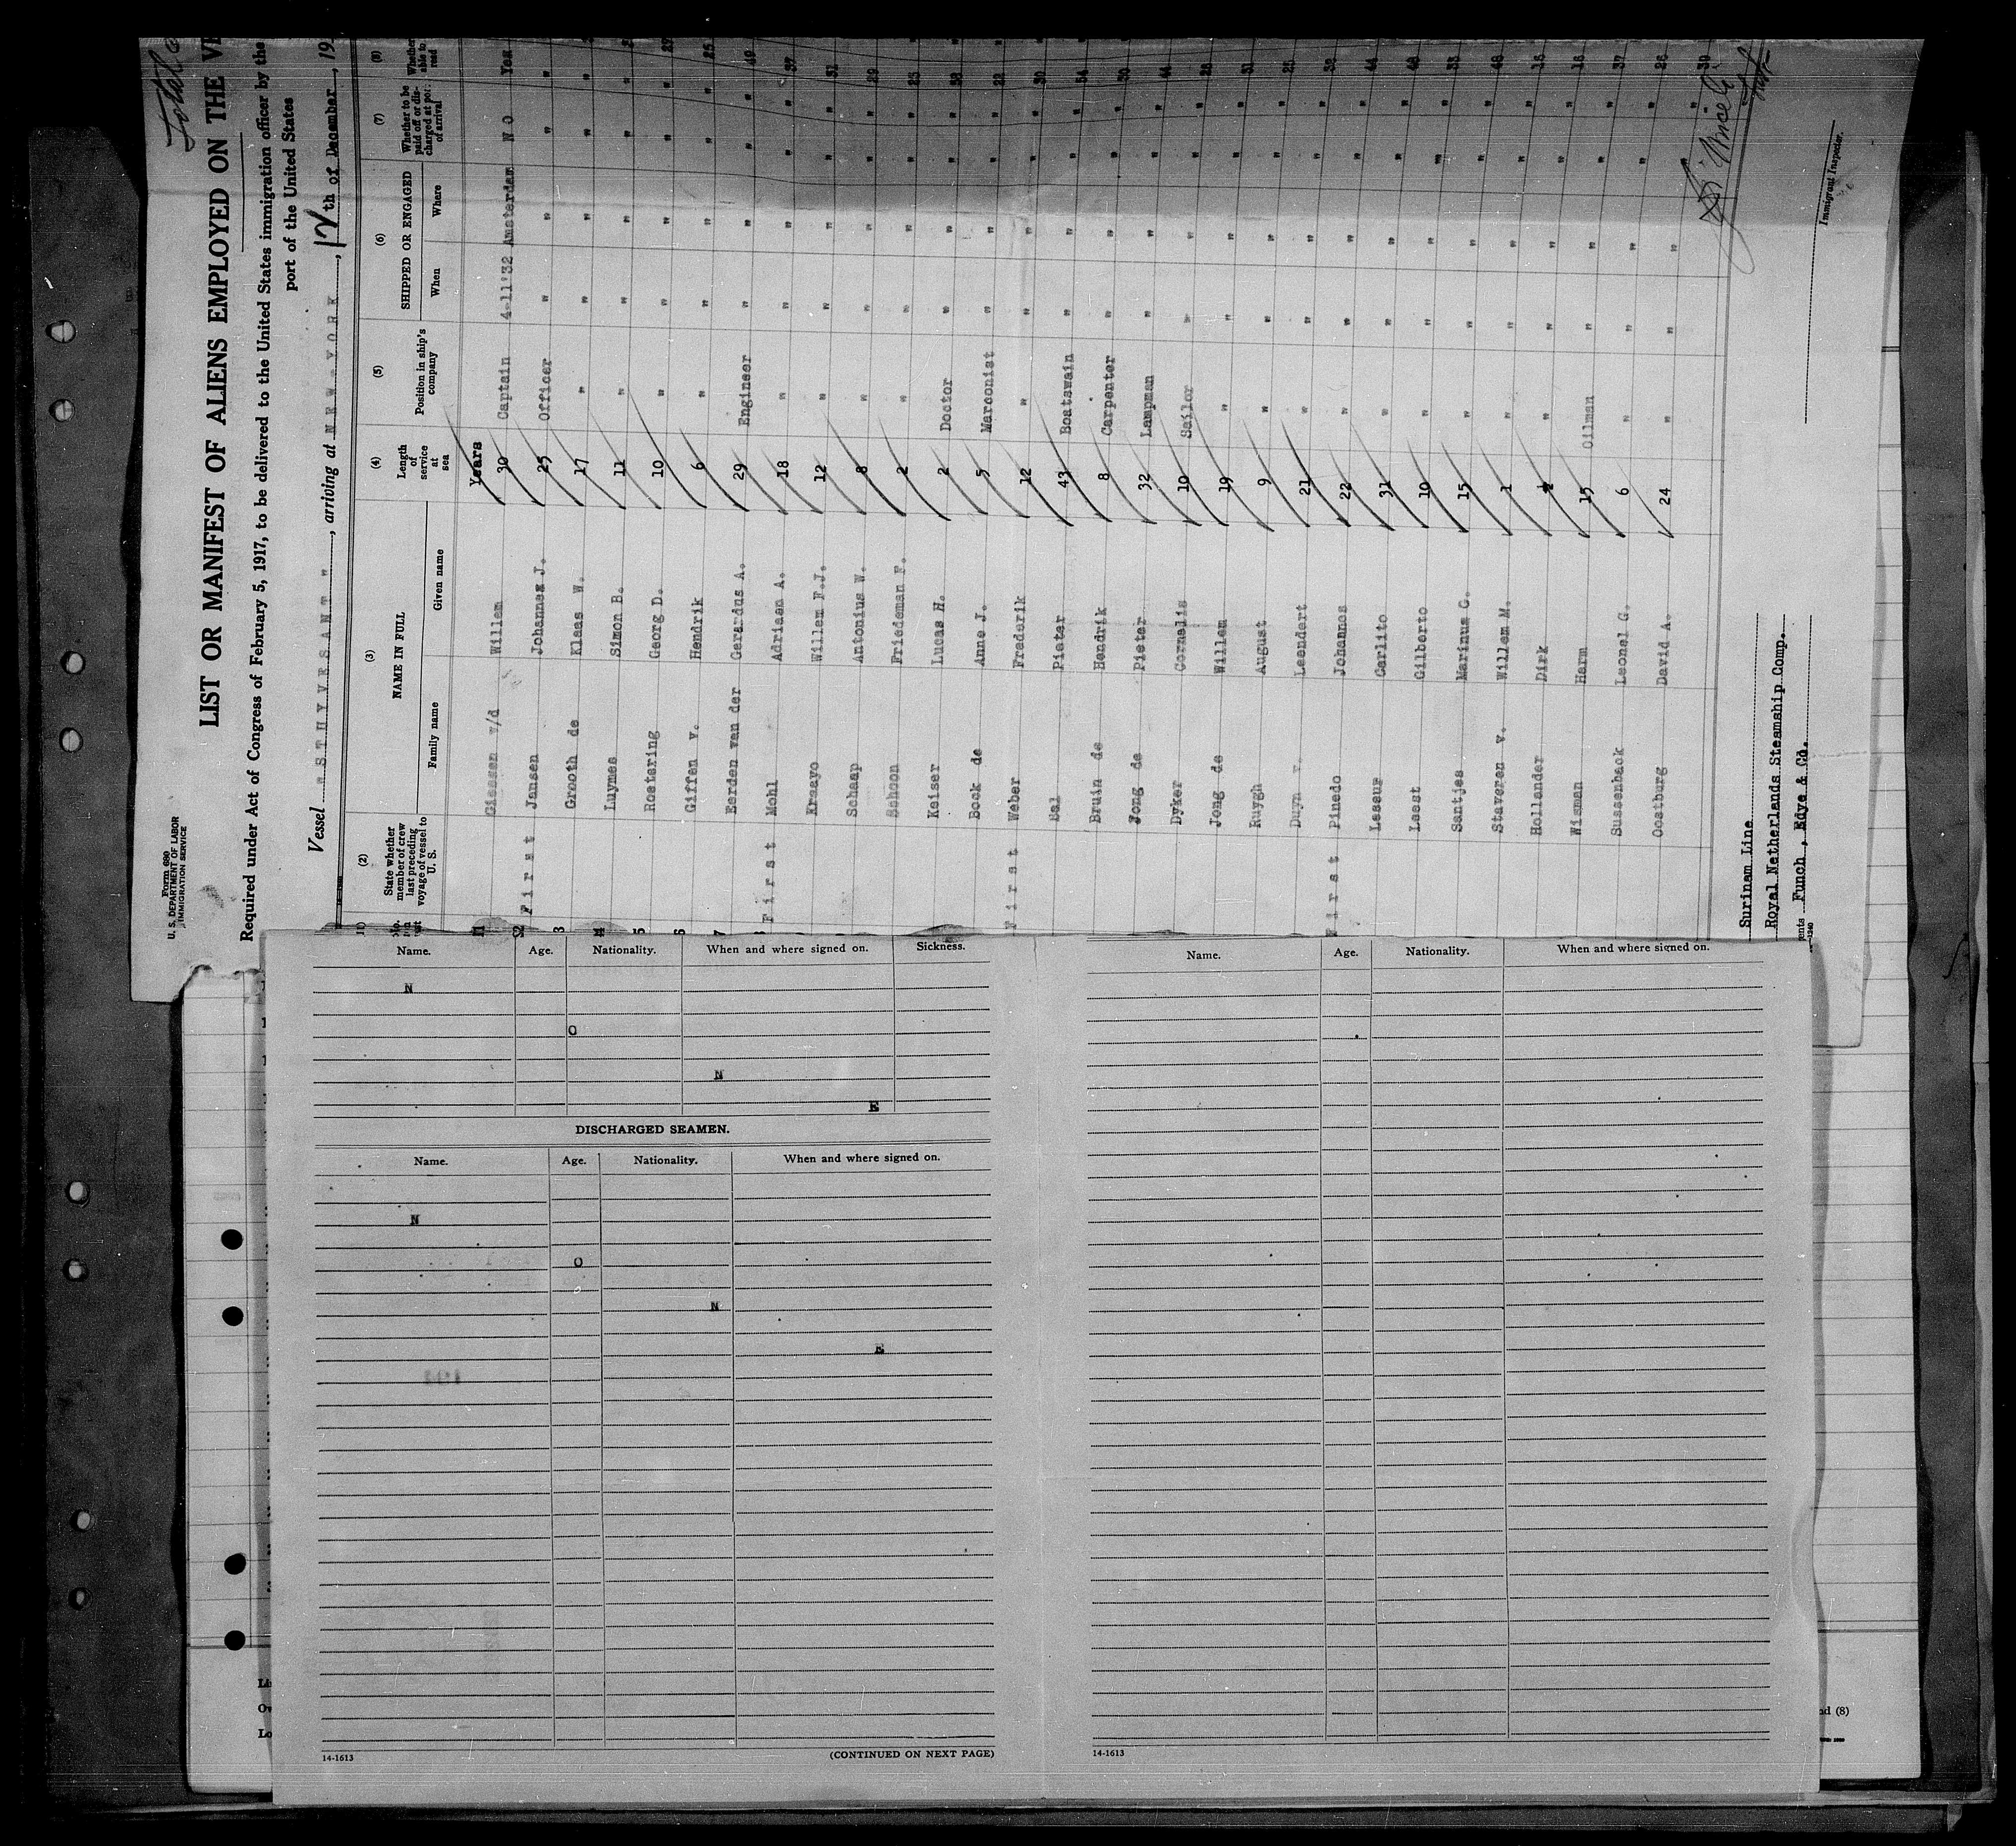 Total
Form 680
U. S. DEPARTMENT OF LABOR
IMMIGRATION SERVICE
LIST OR MANIFEST OF ALIENS EMPLOYED ON THE VE
Required under Act of Congress of February 5, 1917, to be delivered to the United States immigration officer by the
port of the United States
Vessel " S T U Y V E S A N T ", arriving at N E W - Y O R K, 12 th of December, 19
(2) (3) (4) (5) (6) (7) (8)
State whether member of crew last preceding voyage of vessel to U. S. NAME IN FULL Length of service at sea Position in ship's company SHIPPED OR ENGAGED Whether to be paid off or discharged at port of arrival Whether able to read
Family name Given name When Where
Years
Giessen v/d Willem 30 Captain 4-11'32 Amsterdam N O Yes
2 First Jansen Johannes J. 25 Officer " " " "
3 Grooth de Klaas W. 17 " " " " "
4 Luymes Simon B. 11 " " " " "
5 Roetering Georg D. 10 " " " " " 27
6 Giffen v. Hendrik 6 " " " " " 25
7 Eerden van der Gerardus A. 29 Engineer " " " " 49
First Mohl Adriaan A. 18 " " " " " 37
Kraayo Willem F.J. 12 " " " " " 31
Schaap Antonius W. 8 " " " " " 29
Schoon Friedeman F. 2 " " " " " 25
Keiser Lucas H. 2 Doctor " " " "
Bock de Anne J. 5 Marconist " " " " 22
First Weber Frederik 12 " " " " " 30
Bal Pieter 43 Boatswain " " " " 54
Bruin de Hendrik 8 Carpenter " " " " 30
Jong de Pieter 32 Lampman " " " " 44
Dyker Cornelis 10 Sailor " " " " 28
Jong de Willem 19 " " " " " 31
Ruygh August 9 " " " " " 25
Duyn v. Leendert 21 " " " " "
First Pinedo Johannes 22 " " " " " 44
Leseur Carlito 31 " " " " " 48
Leest Gilberto 10 " " " " " 33
Santjes Marinus C. 15 " " " " " 48
Staveren v. Willem M. 1 " " " " " 15
Hollander Dirk ½ " " " " " 16
Wisman Harm 15 Oilman " " " " 37
Sussenback Leonel G. 6 " " " " " 26
Oostburg David A. 24 " " " " " 39
Surinam Line
Royal Netherlands Steamship Comp.
ents Funch, Edye & Co.
Immigrant Inspector.
Name. Age. Nationality. When and where signed on. Sickness.
N
O
N
E
DISCHARGED SEAMEN.
Name. Age. Nationality. When and where signed on.
N
O
N
E
14-1613 (CONTINUED ON NEXT PAGE)
Name. Age. Nationality. When and where signed on.
14-1613
Li
Ow
Lo
nd (8)